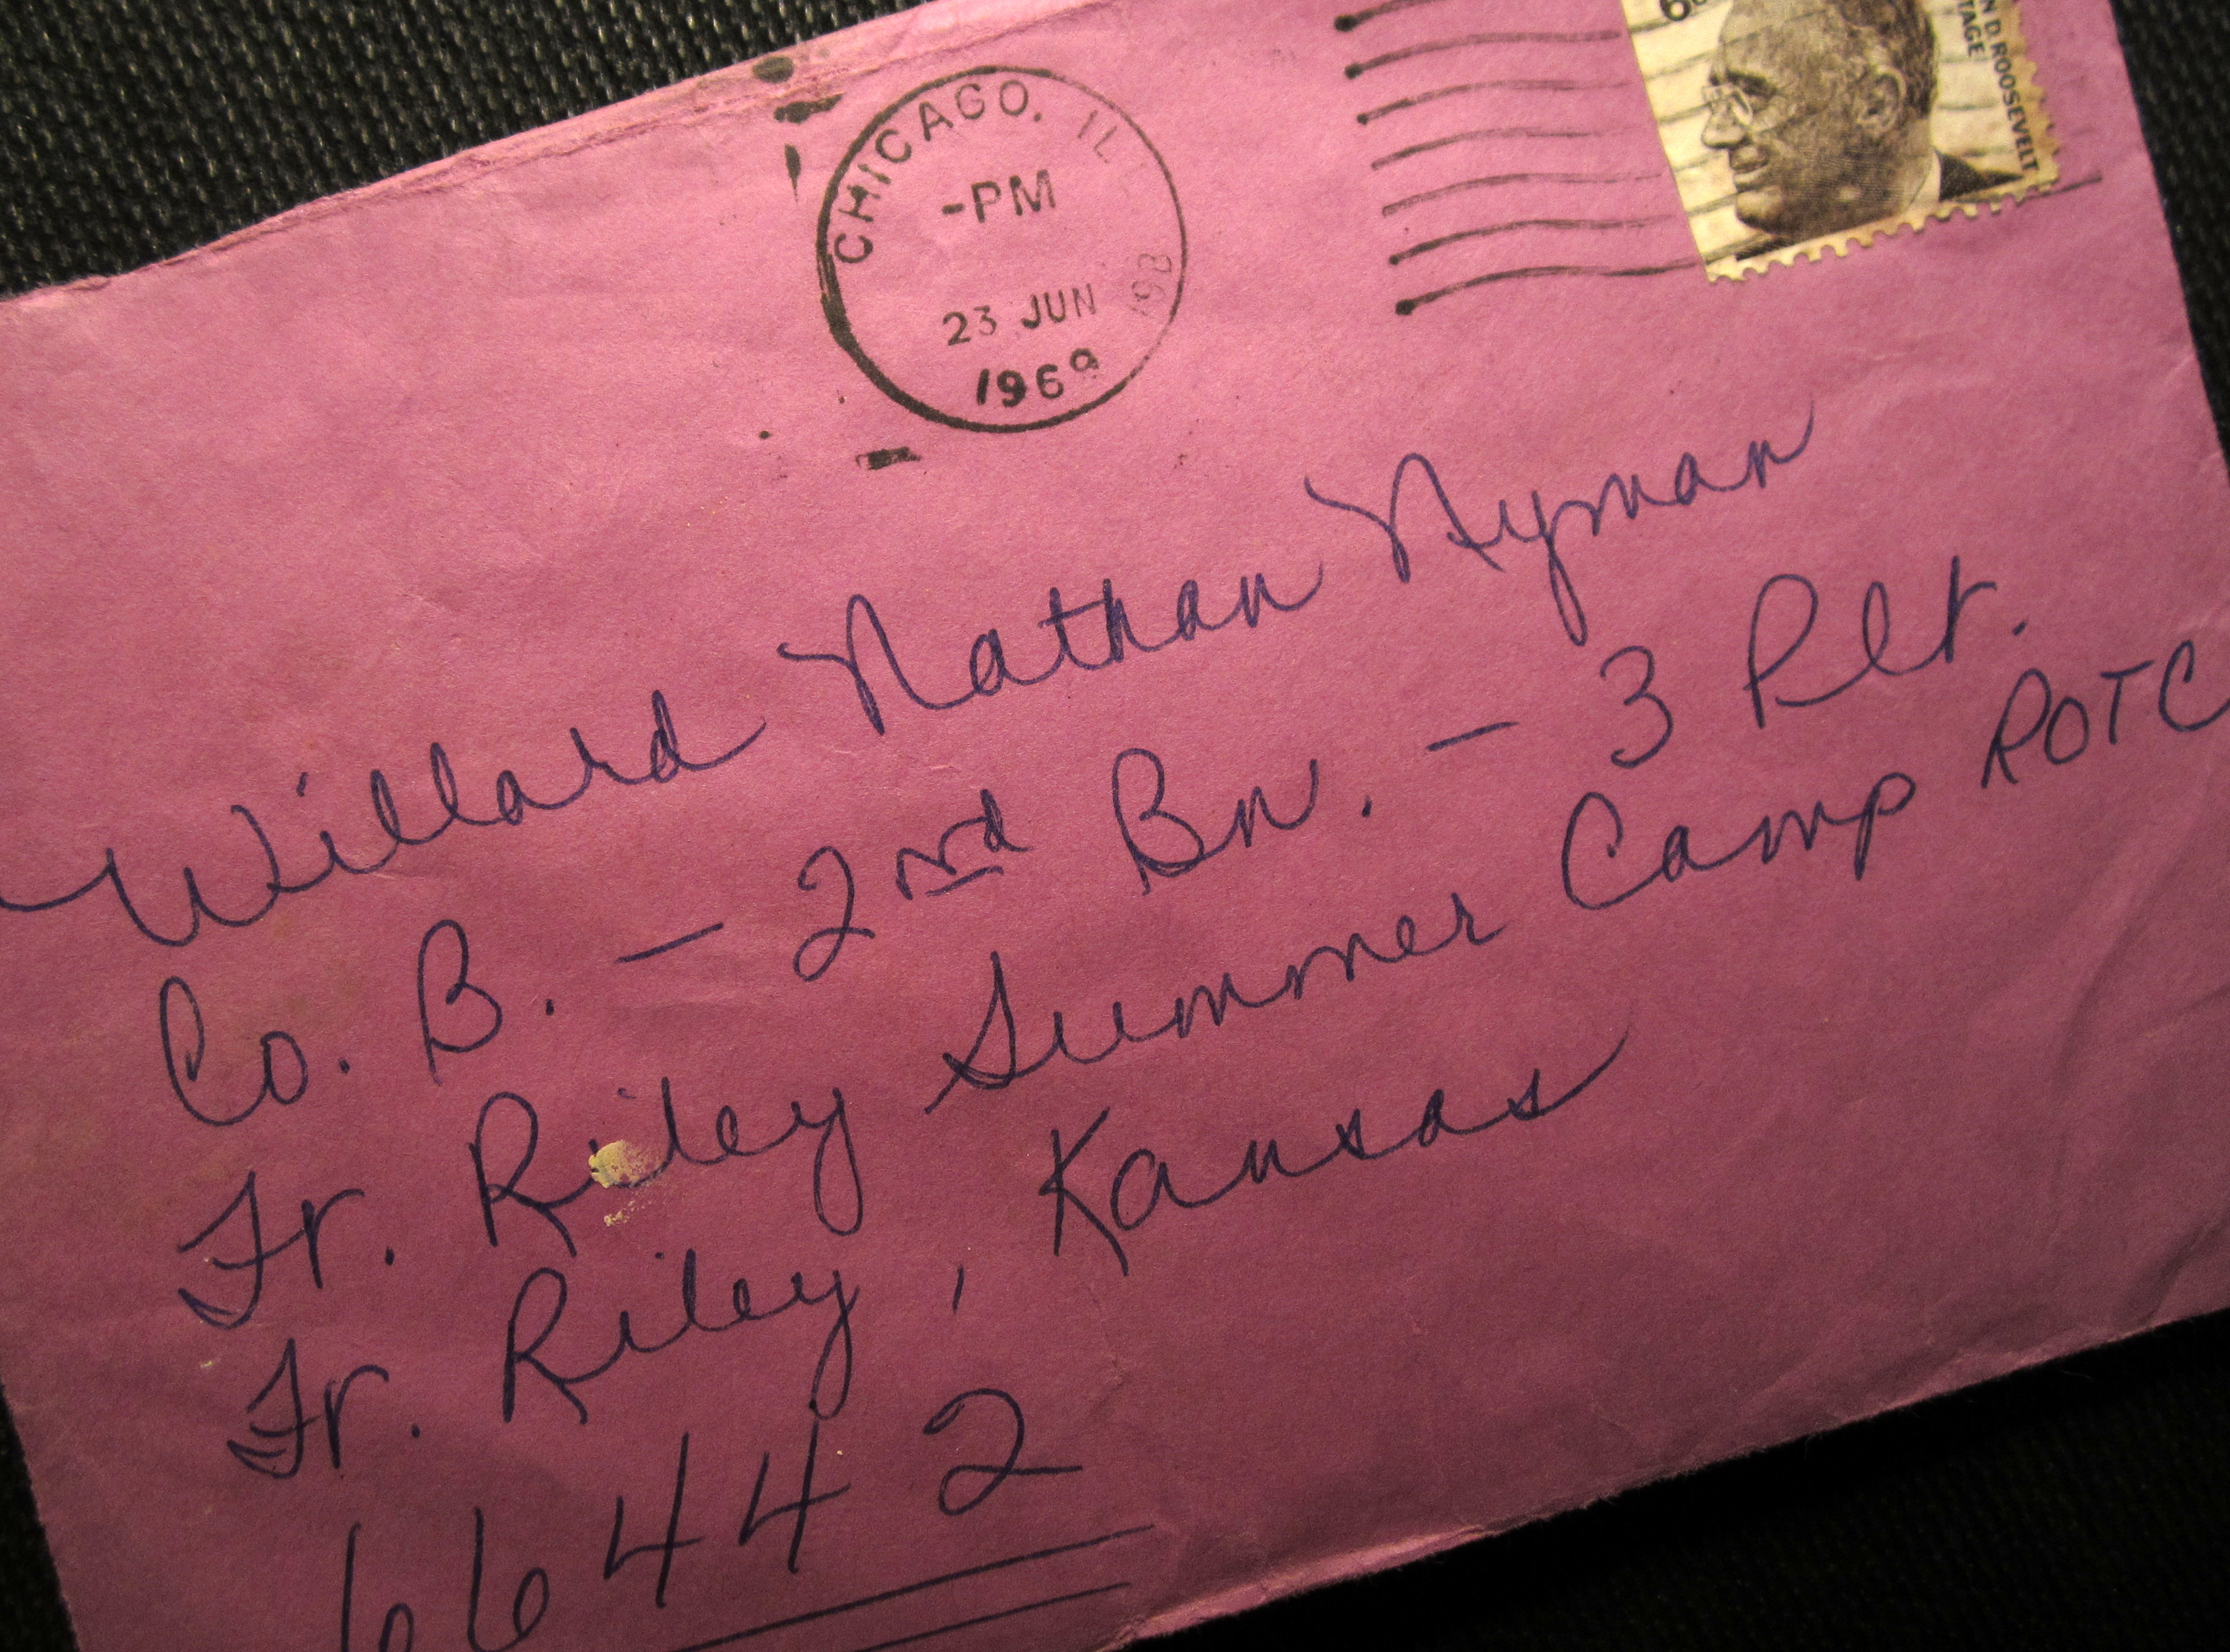 CHICAGO, IL
-PM
23 JUN
1969
6¢
N D. ROOSEVELT
TAGE
Willard Nathan Nyman
Co. B. — 2nd Bn. — 3 Plt.
Ft. Riley Summer Camp ROTC
Ft. Riley, Kansas
66442